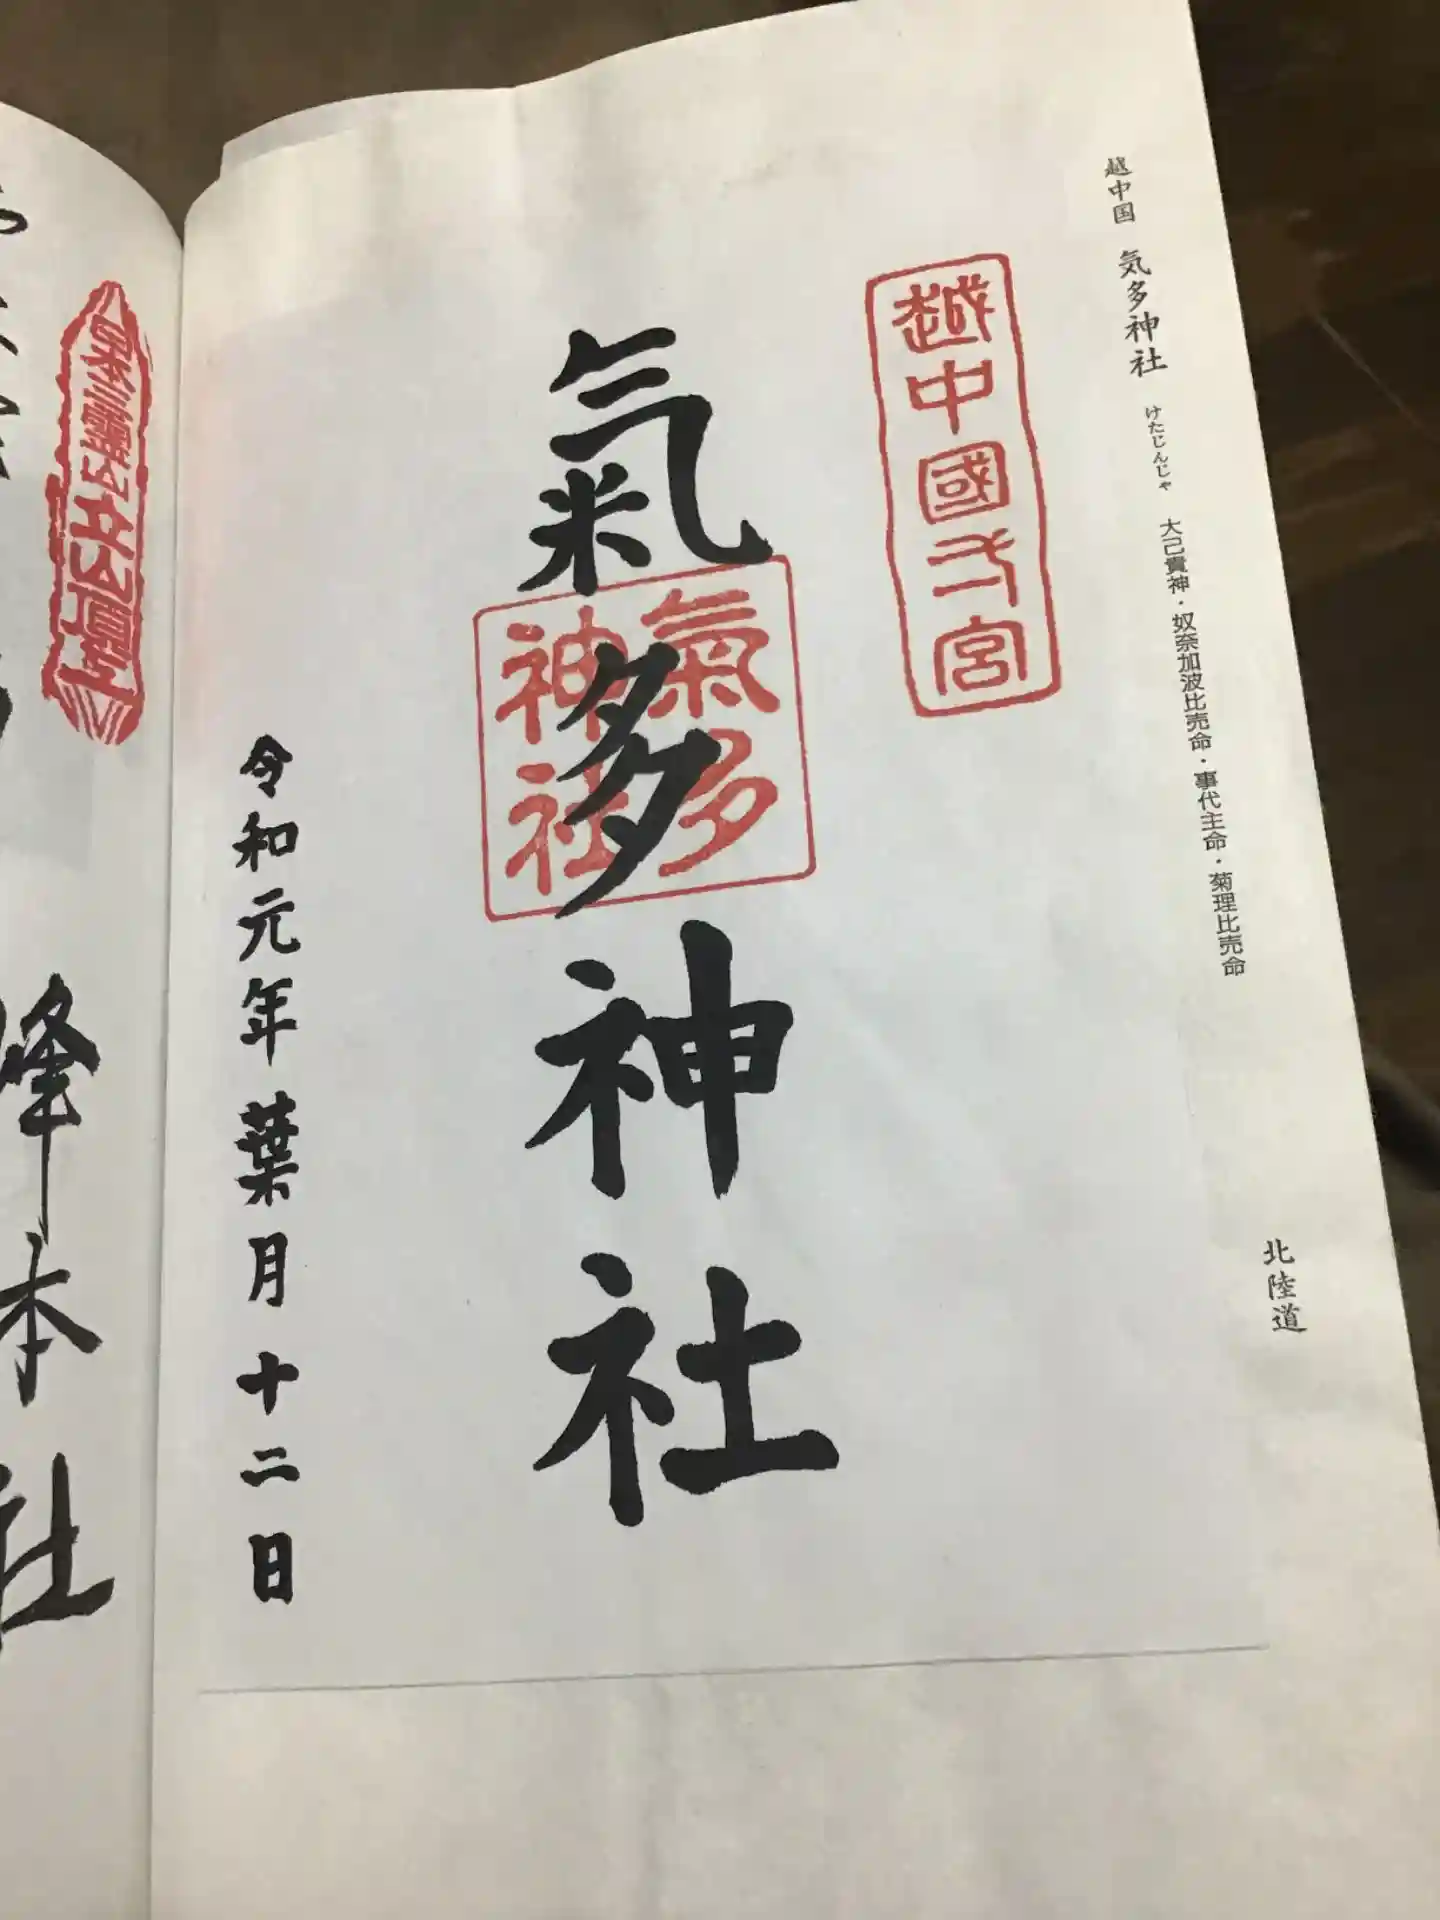 越中国 気多神社 けたじんじゃ 大己貴神・奴奈加波比売命・事代主命・菊理比売命
北陸道
越中國弌宮
氣多神社
氣多
神社
令和元年葉月十二日
日本三靈山立山頂上
峰本社